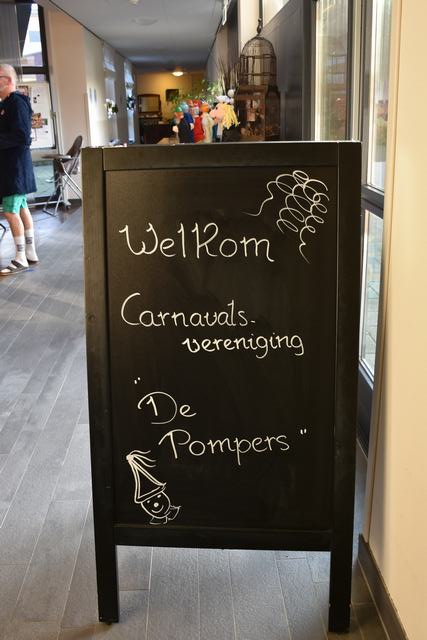 Welkom
Carnavals-
vereniging
"De
Pompers"